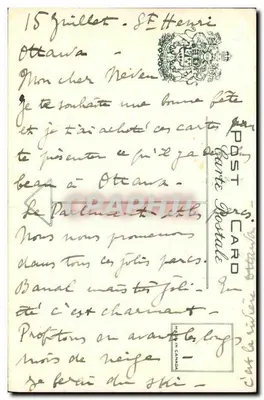 15 Juillet - St Henri
Ottawa -
Mon cher Neveu
Je te souhaite une bonne fête
et je t'ai acheté ces cartes pour
te présenter ce qu'il y a de
beau à Ottawa -
Le Parlement et les Parcs.
Nous nous promenons
dans tous ces jolis parcs.
Banal mais joli -
été c'est charmant -
Profitons en avant les longs
mois de neige -
Je ferai du ski -
POST CARD
Carte Postale
MADE IN CANADA
c'est la rivière Ottawa -
CPARAMA